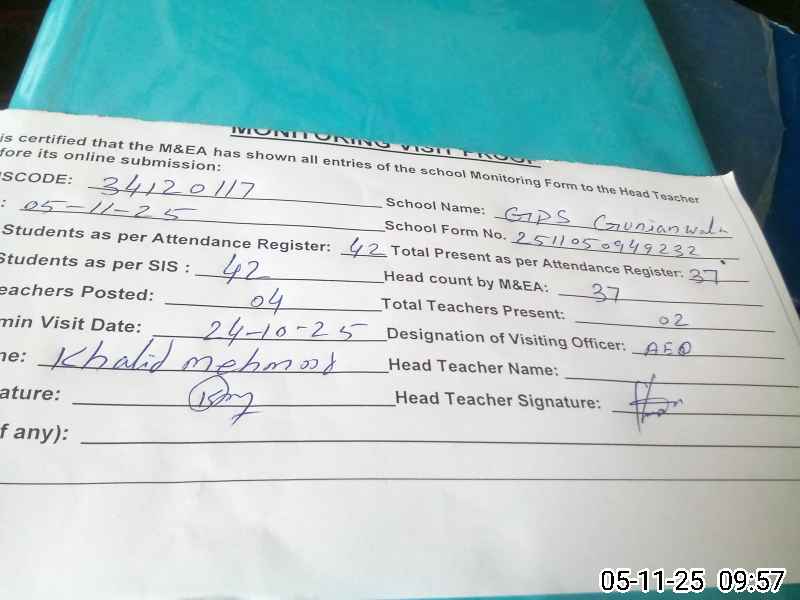 MONITORING VISIT PROOF
is certified that the M&EA has shown all entries of the school Monitoring Form to the Head Teacher
fore its online submission:
ISCODE: 34120117 School Name: GPS Gunianwala
: 05-11-25 School Form No. 2511050949232
Students as per Attendance Register: 42 Total Present as per Attendance Register: 37
Students as per SIS : 42 Head count by M&EA: 37
eachers Posted: 04 Total Teachers Present: 02
min Visit Date: 24-10-25 Designation of Visiting Officer: AEO
me: Khalid mehmood Head Teacher Name:
ature: Head Teacher Signature:
f any):
05-11-25 09:57